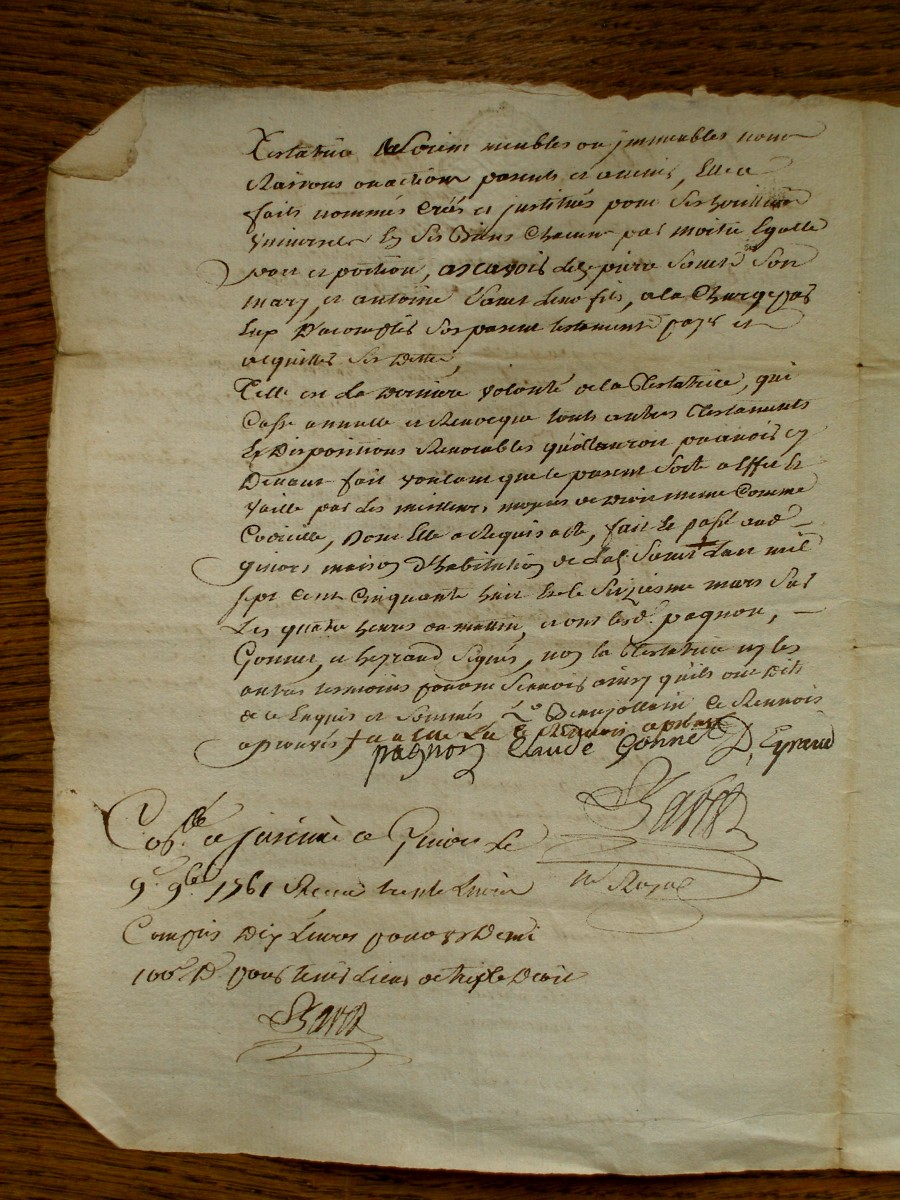 Testatrice de biens meubles ou jmmeubles noms
Raisons ou actions presents et avenir, Elle a
faits nommés Créés et justitués pour ses heritiers
Universels En ses Biens Chacun par moitié Egalle
part et portion, ascavoir led. pierre Sonet Son
mary, et antoine Sonet leur fils, a la Charge par
Eux D'acomplir son present testament payer et
acquitter ses dettes,
Telle est La derniere volonté de la Testatrice, qui
Casse annulle et Revocque touts autres Testaments
Et Dispositions Revocables qu'elle auroit par avois cy
Devant fait voulant que le present sorte a Effet et
vaille par des meilleurs moyens de Droit meme Comme
Codicille, Dont Elle a Requis acte, fait Le passé aud.
maison d'habitation de lad. Sonet L'an mil
sept cent Cinquante huit Et le Seiziesme mars Sur
Les quatre heures du mattin, et ont lesd. pagnon,
Gonnet, et heyraud Signés, non la Testatrice ny les
autres temoins pour ne scavoir ainsy qu'ils ont dits
de ce Enquis et Sommés, Le Renvois
aprouvés + Le Renvois aprouvé
pagnon Claude Gonnet D, Eyraud
Con.lé a a Le
9e. 9bre 1761 Recu
Compris Dix Livres pour Demi
100e. De. pour tenir Lieu de triple Droit